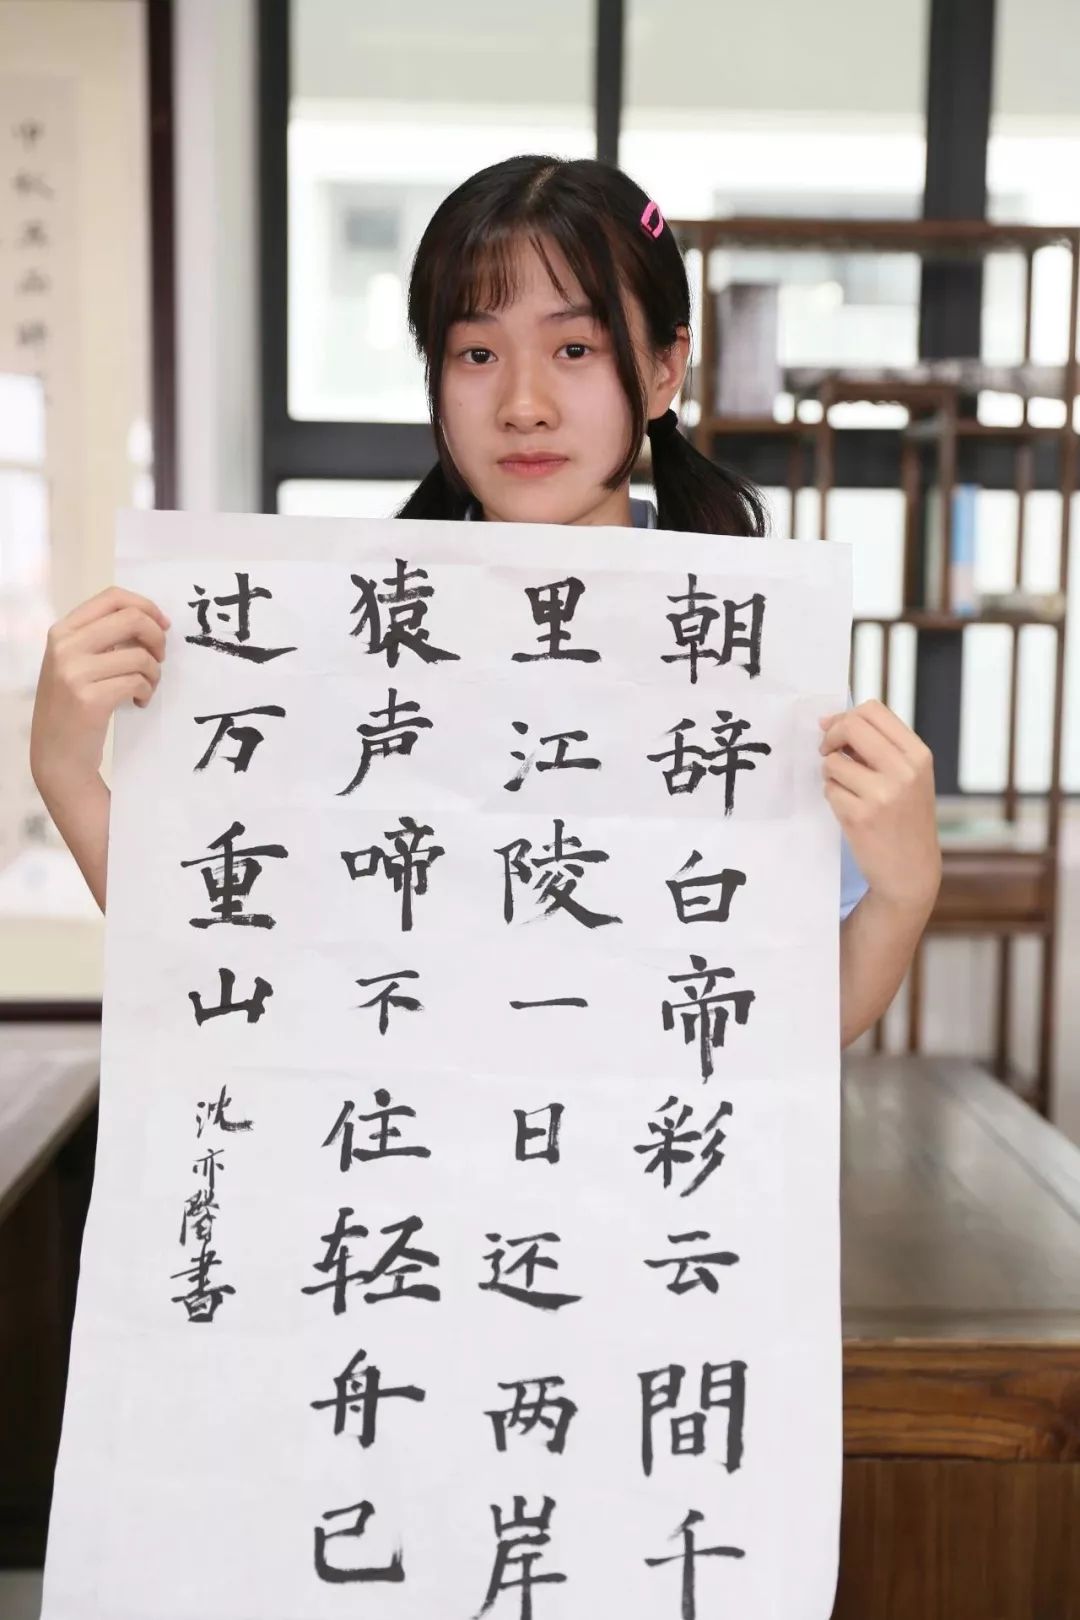 朝辞白帝彩云間千
里江陵一日还两岸
猿声啼不住轻舟已
过万重山
沈亦
書